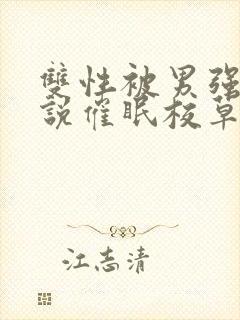 雙性被男强
說催眠校草
江志清